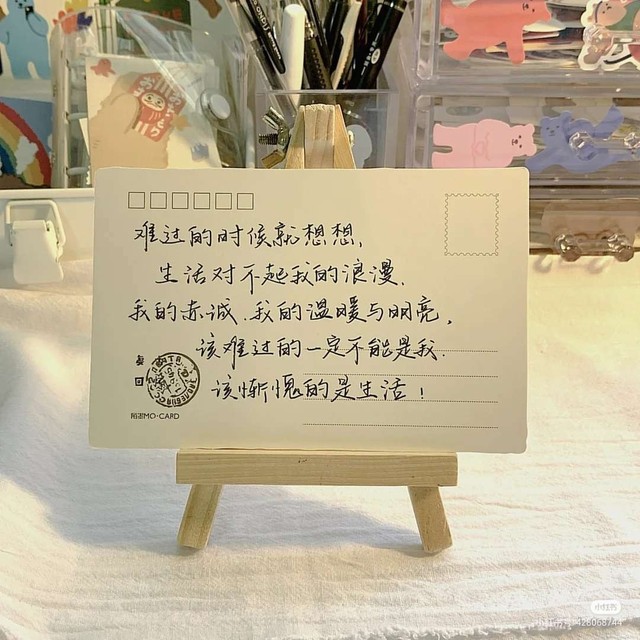 难过的时候就想想,
生活对不起我的浪漫、
我的赤诚、我的温暖与明亮,
该难过的一定不能是我.
该惭愧的是生活!
MO·CARD
小红书
小红书号:428068744